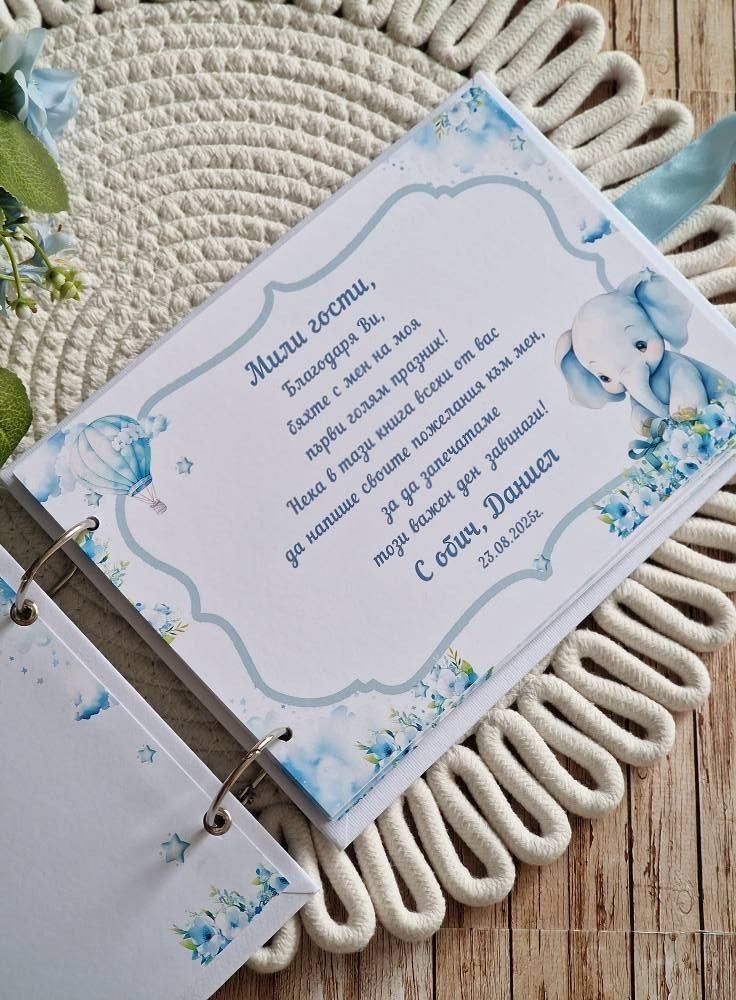 Мили гости,
Благодаря Ви,
бяхте с мен на моя
първи голям празник!
Нека в тази книга всеки от вас
да напише своите пожелания към мен,
за да запечатаме
този важен ден завинаги!
С обич, Даниел
23.08.2025г.